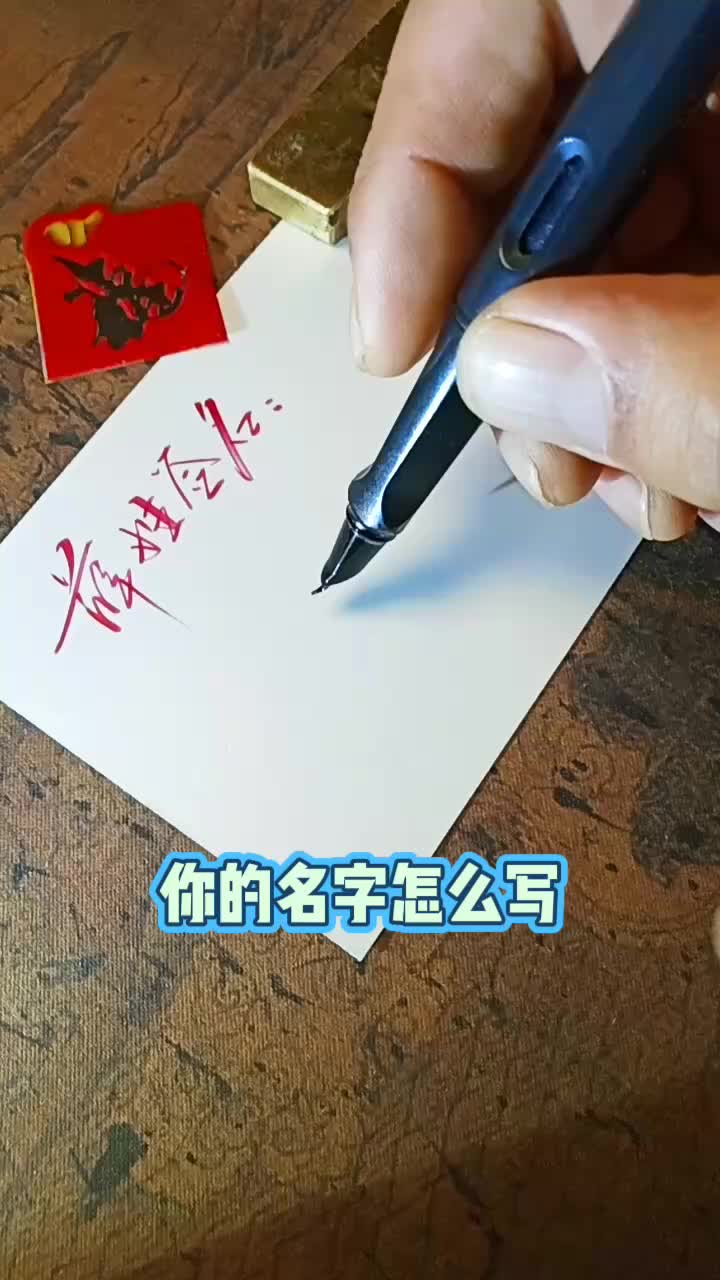 薛姓签名：
你的名字怎么写